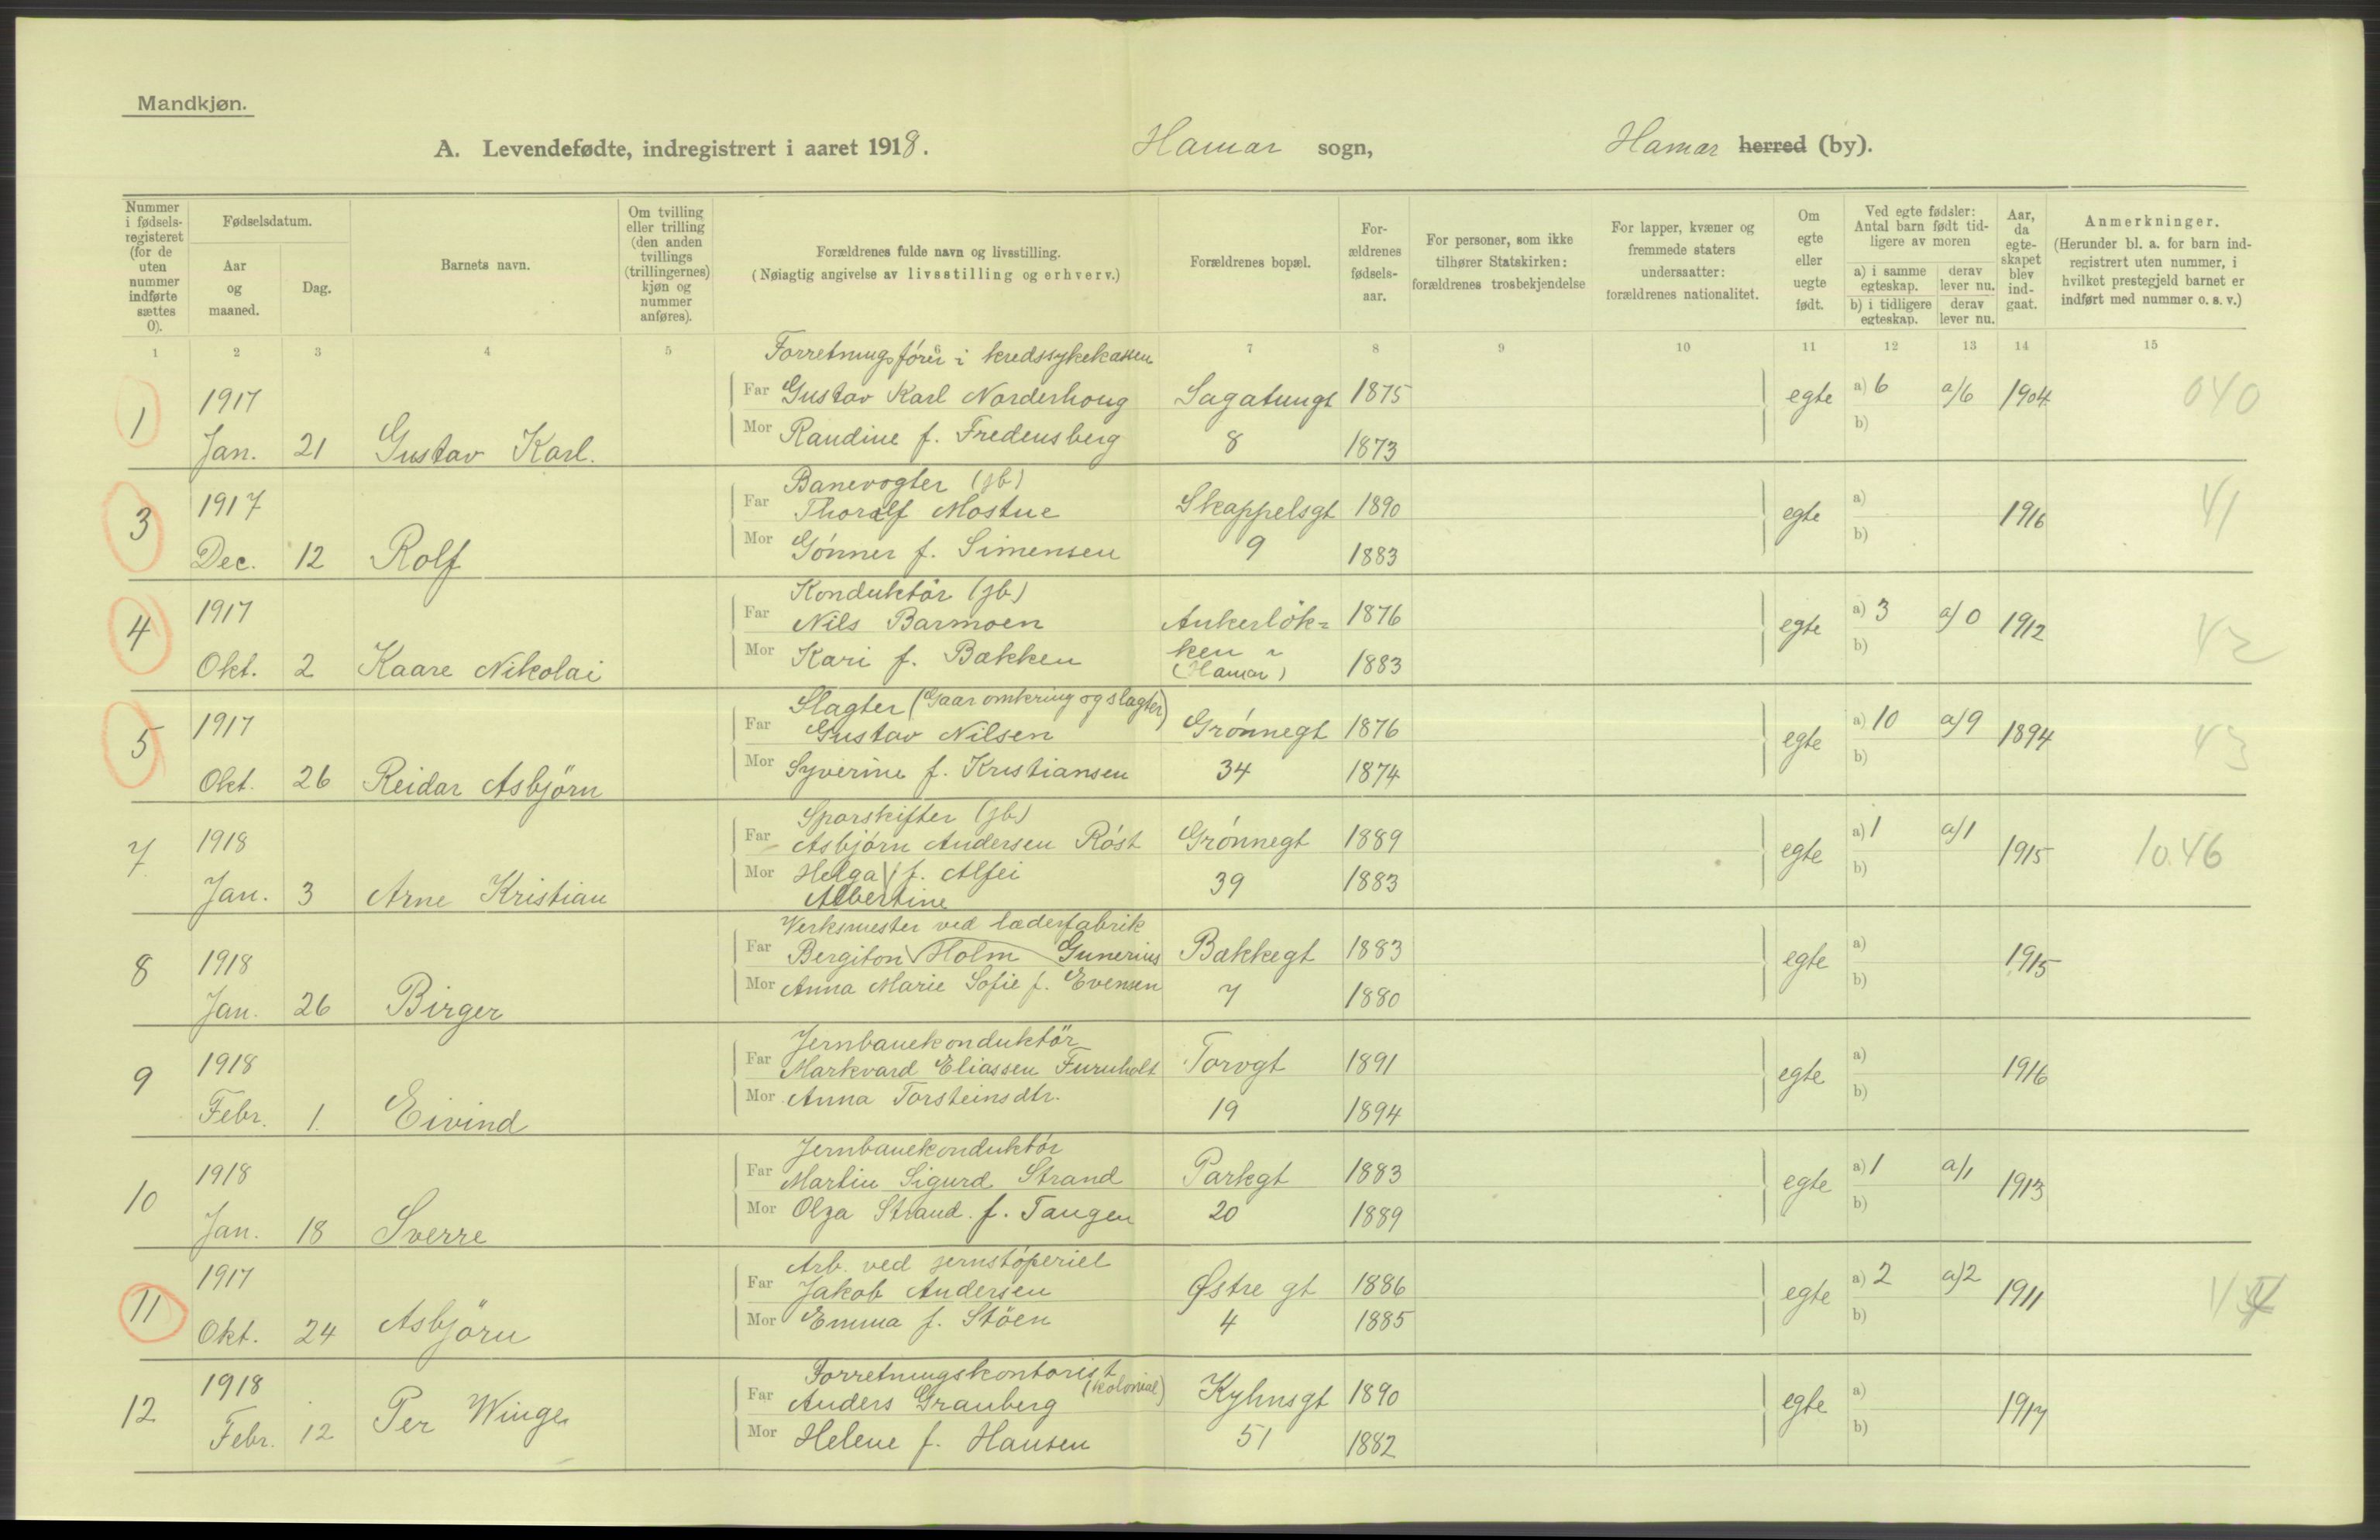 Mandkjøn.
A. Levendefødte, indregistrert i aaret 1918. Hamar sogn, Hamar herred (by).
Nummer i fødselsregisteret (for de uten nummer indførte sættes 0).
Fødselsdatum.
Aar og maaned.
Dag.
Barnets navn.
Om tvilling eller trilling (den anden tvillings (trillingernes) kjøn og nummer anføres).
Forældrenes fulde navn og livsstilling.
(Nøiagtig angivelse av livsstilling og erhverv.)
Forældrenes bopæl.
Forældrenes fødselsaar.
For personer, som ikke tilhører Statskirken: forældrenes trosbekjendelse
For lapper, kvæner og fremmede staters undersaatter: forældrenes nationalitet.
Om egte eller uegte født.
Ved egte fødsler: Antal barn født tidligere av moren
a) i samme egteskap. derav lever nu.
b) i tidligere egteskap. derav lever nu.
Aar, da egteskapet blev indgaat.
Anmerkninger.
(Herunder bl. a. for barn indregistrert uten nummer, i hvilket prestegjeld barnet er indført med nummer o. s. v.)
1 2 3 4 5 6 7 8 9 10 11 12 13 14 15
Forretningsfører i kredssykekassen
1 1917 Far Gustav Karl Norderhoug Sagatungt 1875 egte a) 6 a/6 1904 040
Jan. 21 Gustav Karl. Mor Randine f. Fredensberg 8 1873 b)
Banevogter (jb)
3 1917 Far Thoralf Mostue Skappelsgt 1890 egte a) 1916 41
Dec. 12 Rolf Mor Gønner f. Simensen 9 1883 b)
Konduktör (jb)
4 1917 Far Nils Barmoen Ankerløk= 1876 egte a) 3 a/0 1912 42
Okt. 2 Kaare Nikolai Mor Kari f. Bækken ken (Hamar) 1883 b)
Slagter (Gaar omkring og slagter)
5 1917 Far Gustav Nilsen Grønnegt 1876 egte a) 10 a/9 1894 43
Okt. 26 Reidar Asbjörn Mor Syverine f. Kristiansen 34 1874 b)
Sporskifter (jb)
7 1918 Far Asbjörn Andersen Röst Grønnegt 1889 egte a) 1 a/1 1915 10.46
Jan. 3 Arne Kristian Mor Helga f. Alfei 39 1883 b)
Albertine
Verksmester ved læderfabrik
8 1918 Far Bergiton Holm Gunerius Bækkegt 1883 egte a) 1915
Jan. 26 Birger Mor Anna Marie Sofie f. Evensen 7 1880 b)
Jernbanekonduktör
9 1918 Far Markvard Eliassen Furuholt Torvgt 1891 egte a) 1916
Febr. 1. Eivind Mor Anna Torsteinsdtr. 19 1894 b)
Jernbanekonduktör
10 1918 Far Martin Sigurd Strand Parkgt 1883 egte a) 1 a/1 1913
Jan. 18 Sverre Mor Olga Strand f. Tangen 20 1889 b)
Arb. ved jernstøperiet
11 1917 Far Jakob Andersen Østre gt 1886 egte a) 2 a)2 1911
Okt. 24 Asbjörn Mor Emma f. Stöen 4 1885 b)
Forretningskontorist (kolonial)
12 1918 Far Anders Granberg Kyhnsgt 1890 egte a) 1917
Febr. 12 Per Winge Mor Helene f. Hansen 51 1882 b)